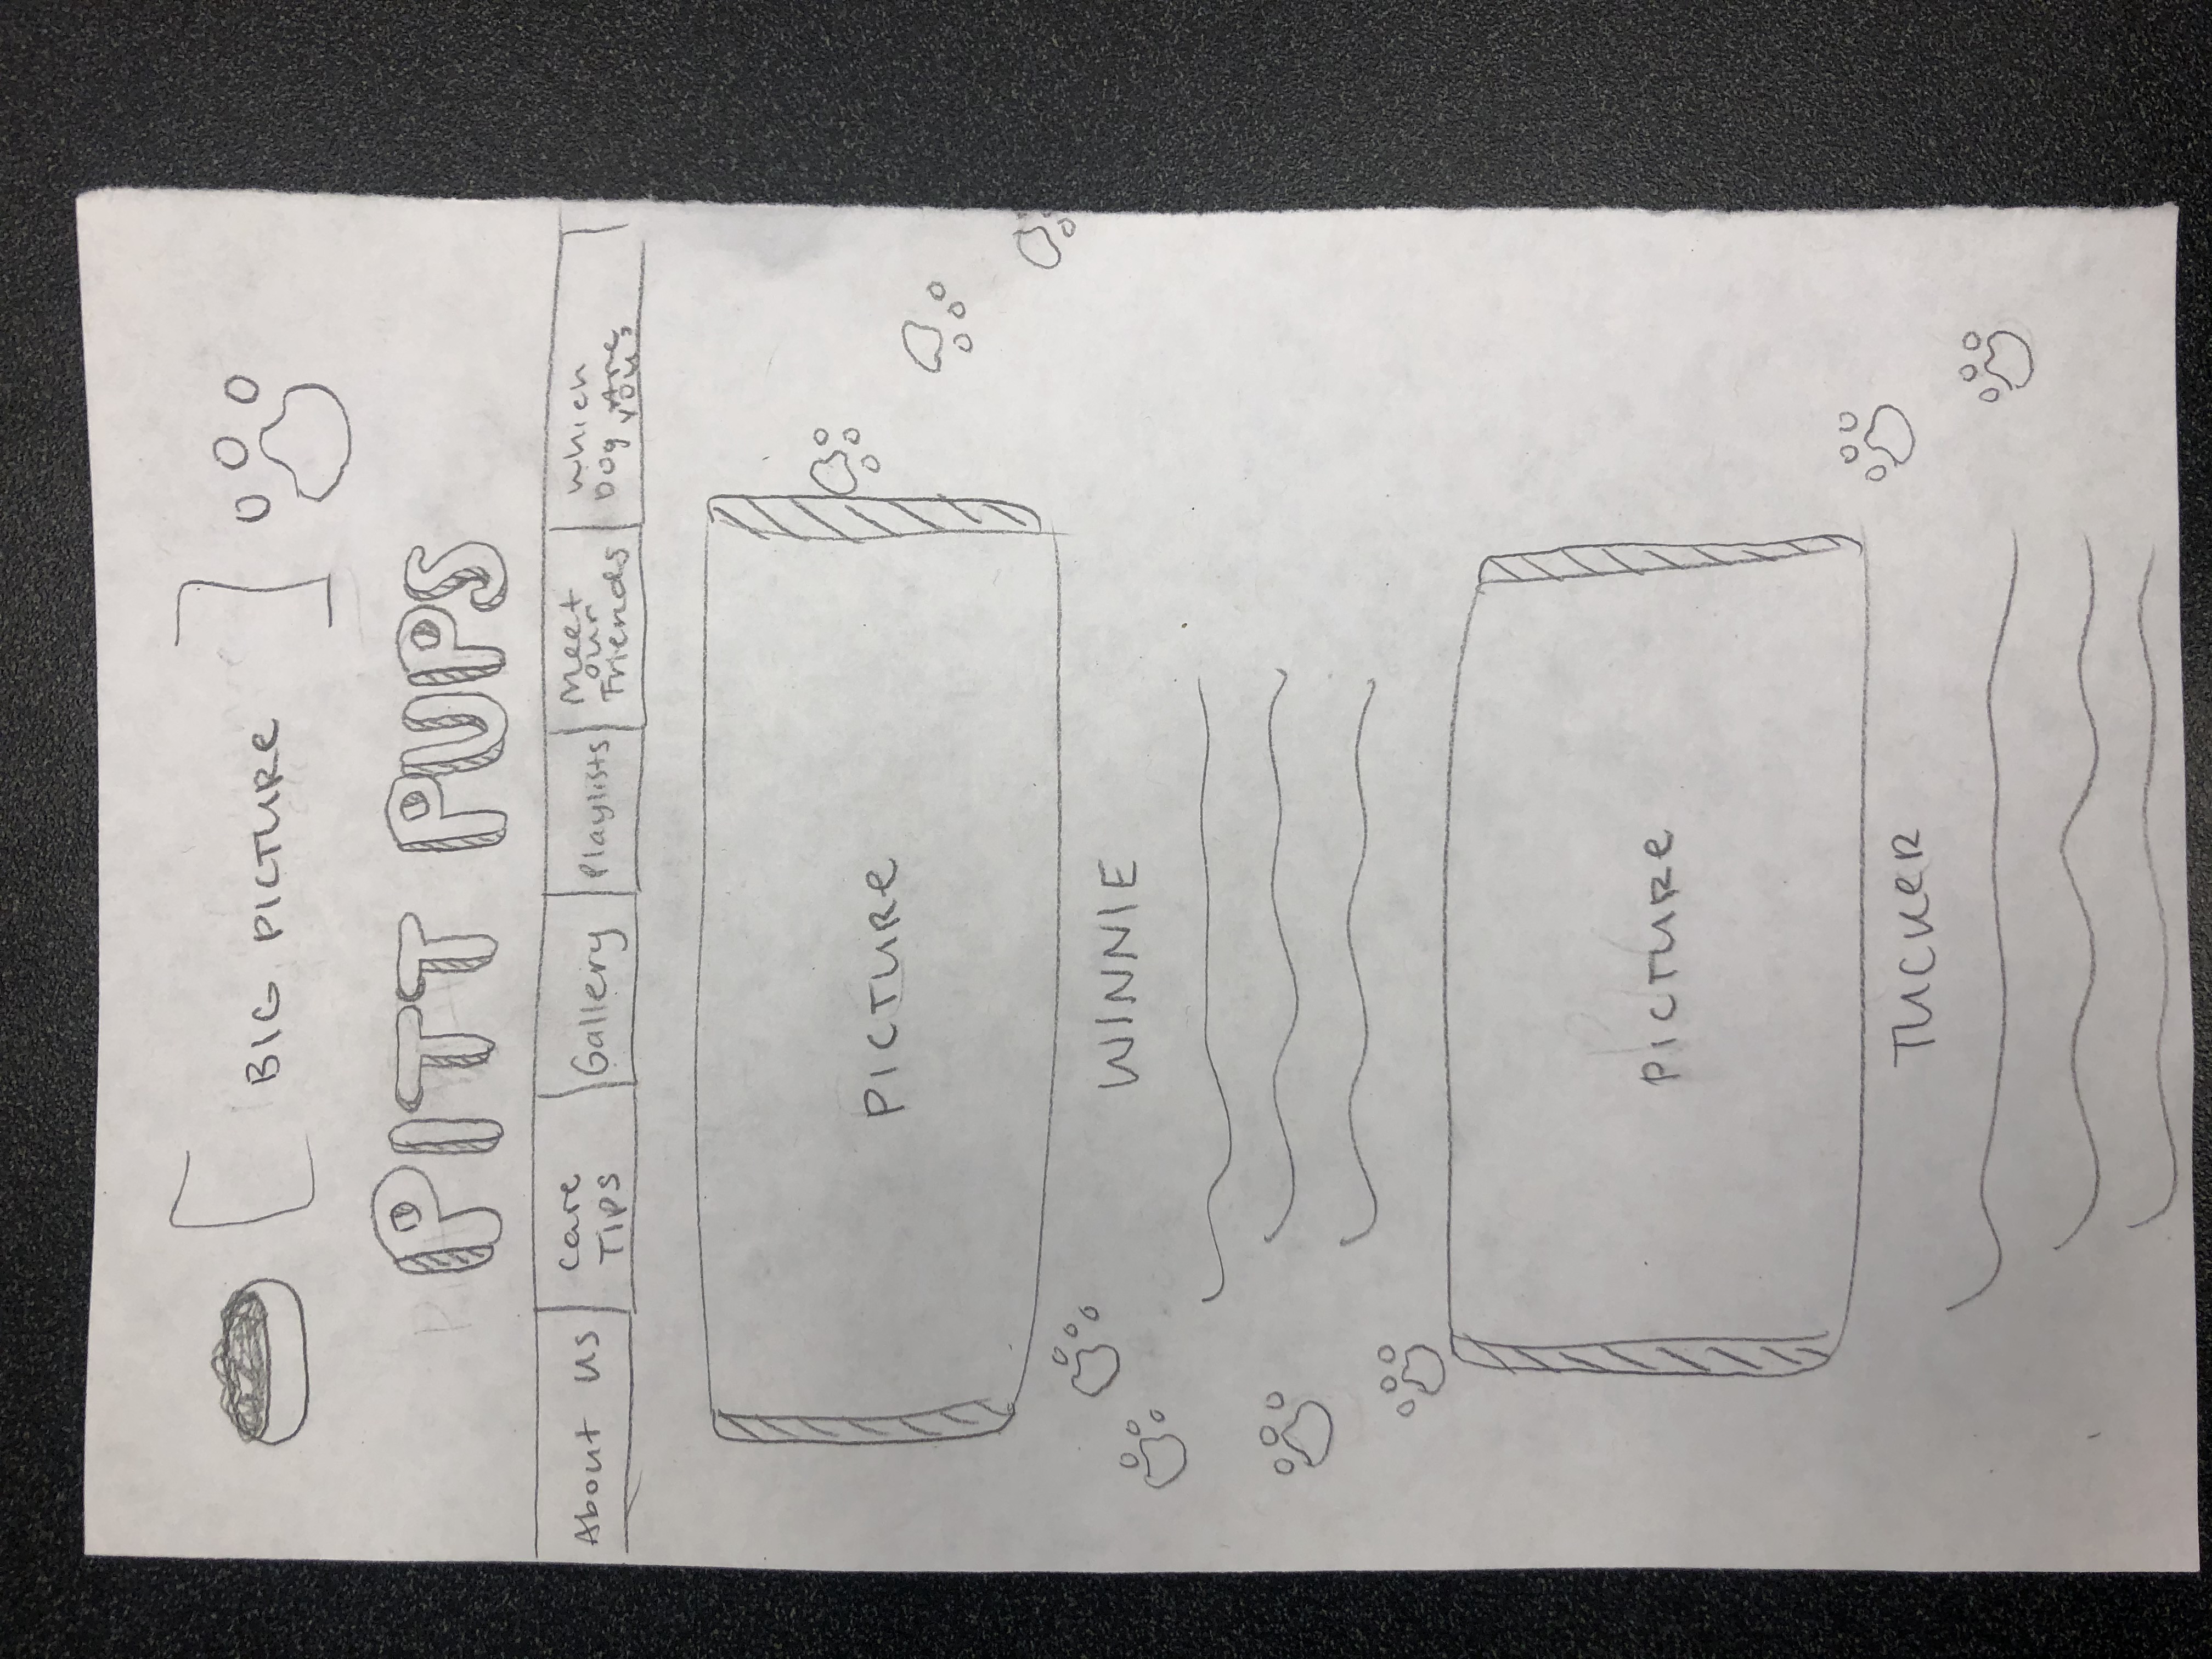 BIG PICTURE
PITT PUPS
About us
Care
Tips
Gallery
Playlists
Meet
our
Friends
Which
Dog Are
you?
PICTURE
WINNIE
PICTURE
TUCKER